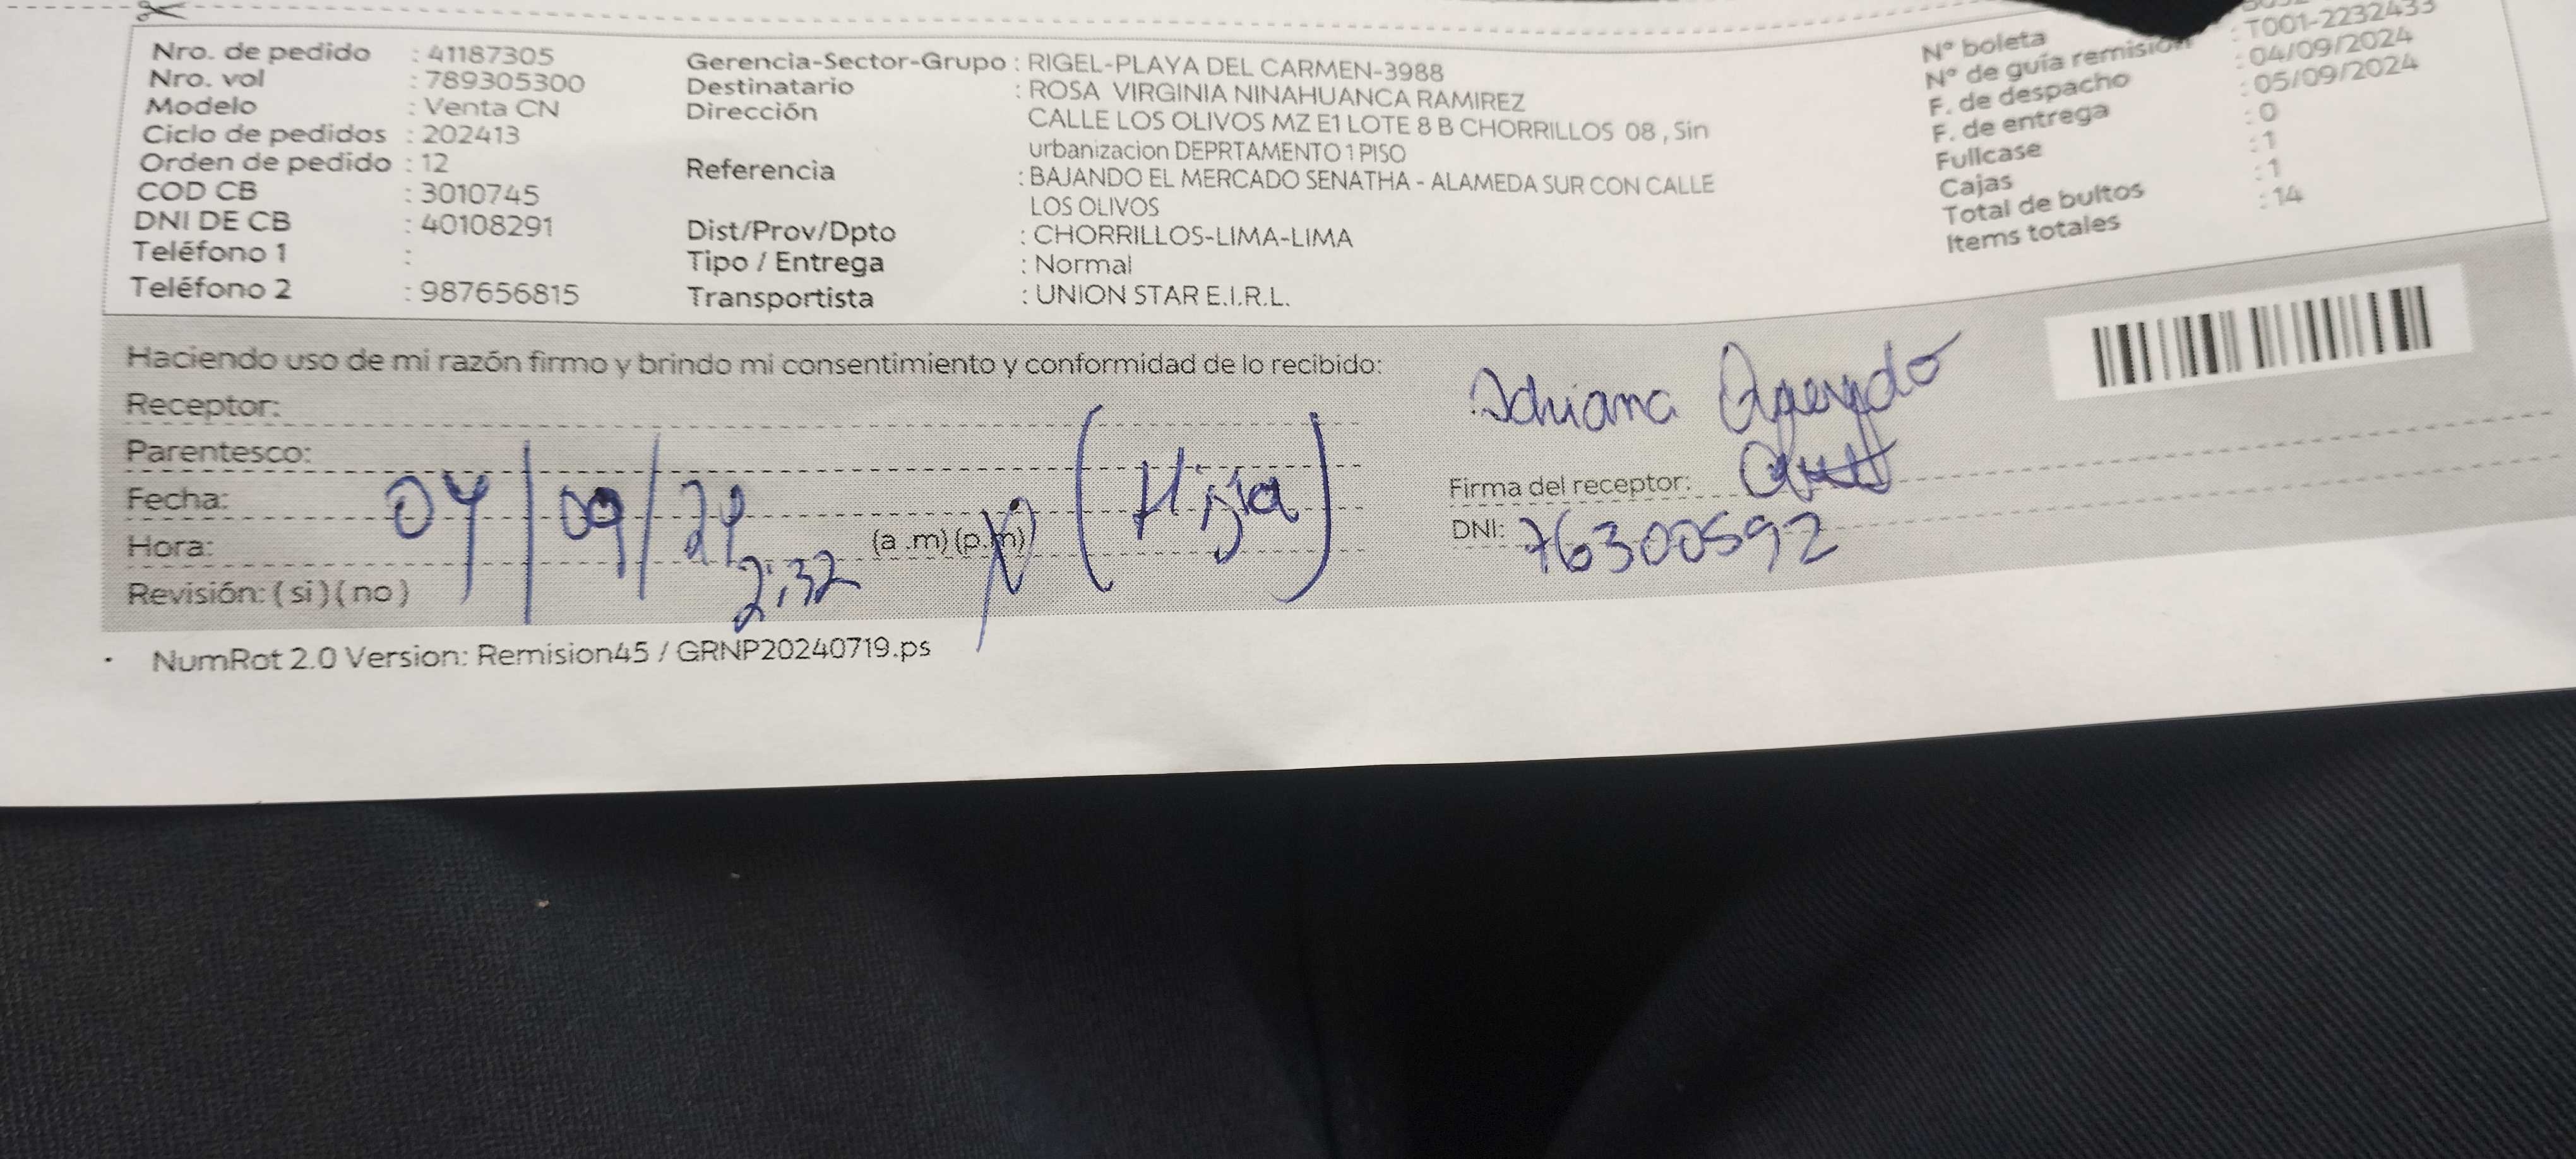 Nro. de pedido : 41187305
Nro. vol : 789305300
Modelo : Venta CN
Ciclo de pedidos : 202413
Orden de pedido : 12
COD CB : 3010745
DNI DE CB : 40108291
Teléfono 1 :
Teléfono 2 : 987656815
Gerencia-Sector-Grupo : RIGEL-PLAYA DEL CARMEN-3988
Destinatario : ROSA VIRGINIA NINAHUANCA RAMIREZ
Dirección CALLE LOS OLIVOS MZ E1 LOTE 8 B CHORRILLOS 08 , Sin
urbanizacion DEPRTAMENTO 1 PISO
Referencia : BAJANDO EL MERCADO SENATHA - ALAMEDA SUR CON CALLE
LOS OLIVOS
Dist/Prov/Dpto : CHORRILLOS-LIMA-LIMA
Tipo / Entrega : Normal
Transportista : UNION STAR E.I.R.L.
N° boleta
N° de guía remisión : T001-2232433
F. de despacho : 04/09/2024
F. de entrega : 05/09/2024
Fullcase : 0
Cajas : 1
Total de bultos : 1
Items totales : 14
Haciendo uso de mi razón firmo y brindo mi consentimiento y conformidad de lo recibido:
Receptor:
Parentesco: (Hija)
Fecha: 04/09/24
Hora: 2:32 (a .m) (p.m)
Revisión: ( si ) ( no )
Adriana
Firma del receptor:
DNI: 76300592
NumRot 2.0 Version: Remision45 / GRNP20240719.ps